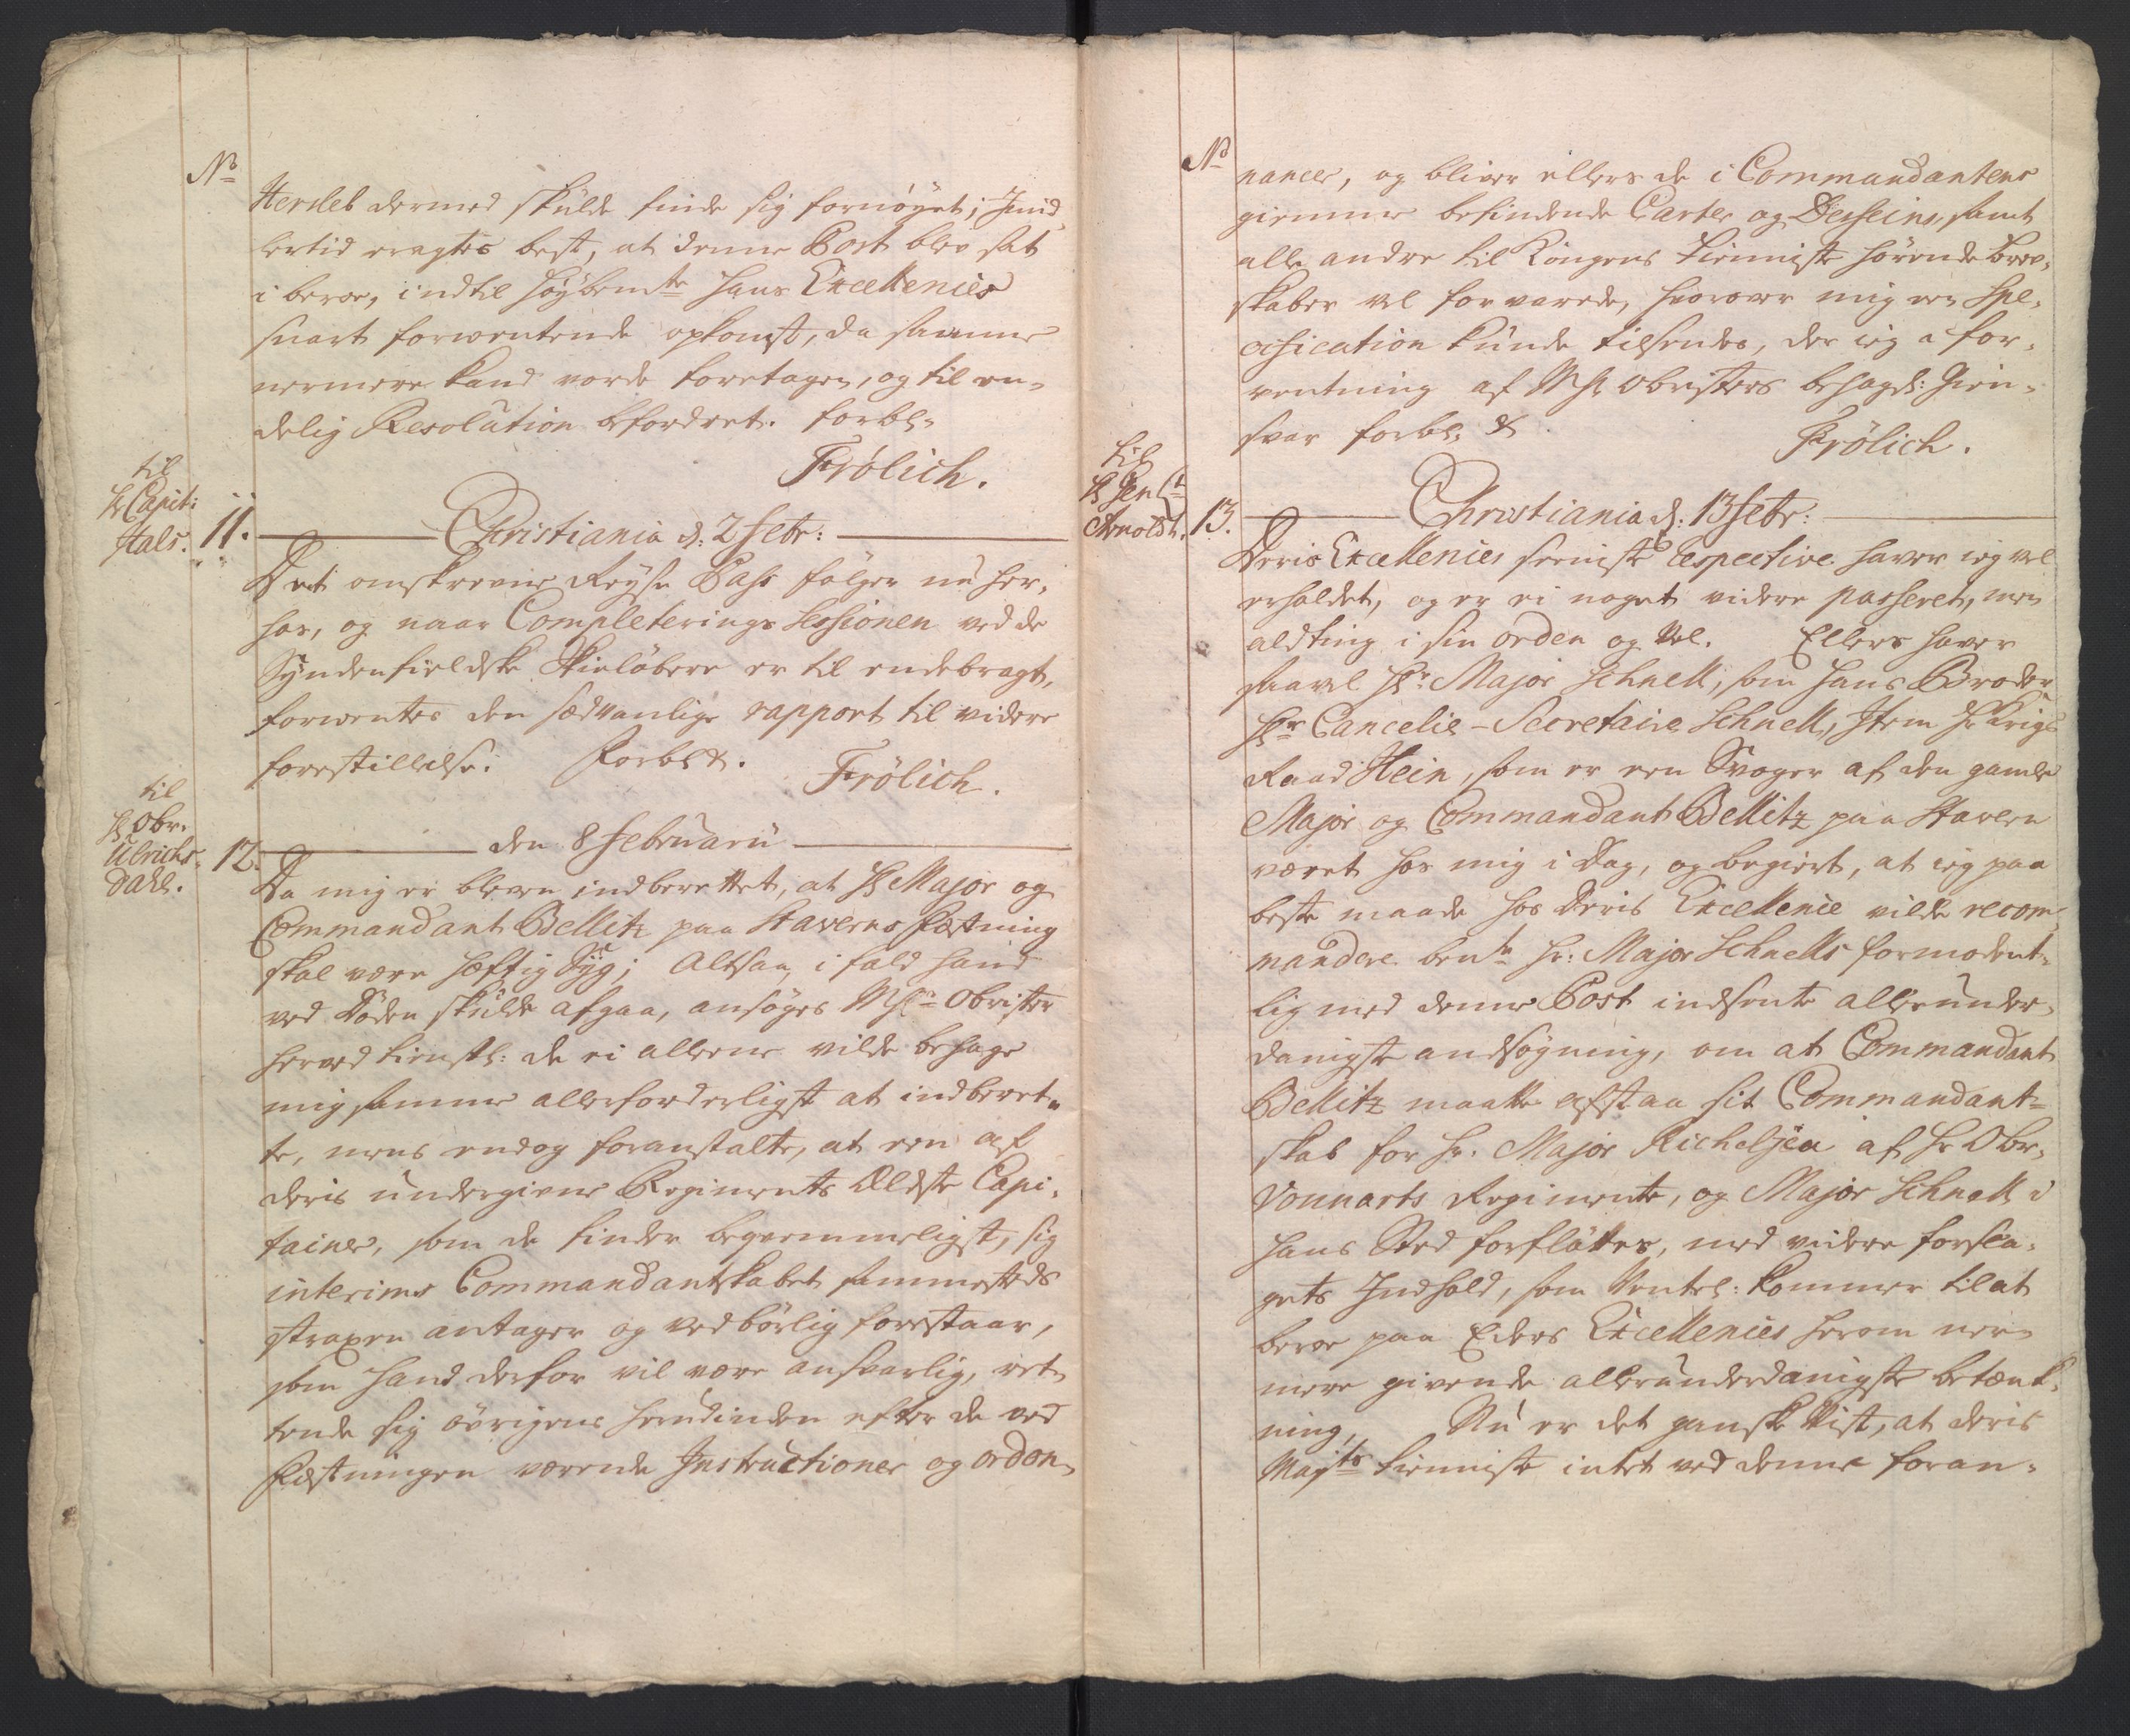 No
Hersleb dermed skulde finde sig fornøyet; Imid
lertid eragtes best, at denne Post blev sat
i beroe, indtil høybemte hans Excellences
snart forventende opkomst, da samme
nermere kand vorde foretagen, og til en-
delig Resolution befordret. forbl:
Frölich.
til
Hr Capit:
Hals.
11. Christiania d: 2 febr:
Det omskrevne Reyse Pass følger nu her-
hos, og naar Completerings Sessionen ved de
Syndenfieldske Skieløbere er til endebragt,
forventes den sædvanlige rapport til videre
forestillelse. Forbl &.
Frölich.
til
Hr Obr.
Ulrichs-
dahl.
12. den 8 februarii
Da mig er bleven indberettet, at Hr Major og
Commandant Bellitz paa Staverns Fæstning
skal være hæftig Syg; Altsaa, i fald hand
ved Døden skulde afgaa, ansøges Mhr Obrister
herved tienstl: de ei alleene vilde behage
mig samme allerforderligst at indberet-
te, mens endog foranstalte, at een af
deris undergivne Regiments Ældste Capi-
tainer, som de finder beqvemmeligst, sig
interims Commandantskabet sammesteds
straxen antager og vedbørlig forestaar,
som hand derfor vil være ansvarlig, ret-
tende sig øvrigens hermdinden efter de ved
Fæstningen værende Instructioner og ordon-
No
nancer, og bliver ellers de i Commandantens
giemme befindende Carter og Desseins, samt
alle andre til Kongens tienniste hørende brev-
skaber vel forvarede, hvorover mig een Spe-
cification kunde tilsendes, der ieg i for-
ventning af Mhr Obristers behagel: Gien-
svar forbl: &.
Frölich.
til
Hr Gen Lt
Arnoldt.
13. Christiania d: 13 febr:
Deris Excellences seeniste respective haver ieg vel
erholdet, og er ei noget videre passeret, men
aldting i sin orden og Vel. Ellers haver
saavel Hr Major Schnell, som hans Broder
Hr Cancelie-Secretaire Schnell, Item Hr Krigs
Raad Hein, som er een Svoger af den gamle
Major og Commandant Bellitz paa Stavern
været hos mig i Dag, og begiert, at ieg paa
beste maade hos Deris Excellence vilde recom-
mandere bemte Hr: Major Schnells formodent-
lig med denne Post indsente allerunder-
danigste ansøgning, om at Commandant
Bellitz maatte afstaa sit Commandant-
skab for Hr. Major Richelsien af Hr Obr.
Vonnarts Regimente, og Major Schnell i
hans Sted forfløttes, med videre forsla-
gets Indhold, som Ventel: kommer til at
beroe paa Eders Excellences herom ner-
mere givende allerunderdanigste betænk-
ning, Nu er det ganske Vist, at deris
Majts tienniste intet ved denne foran-